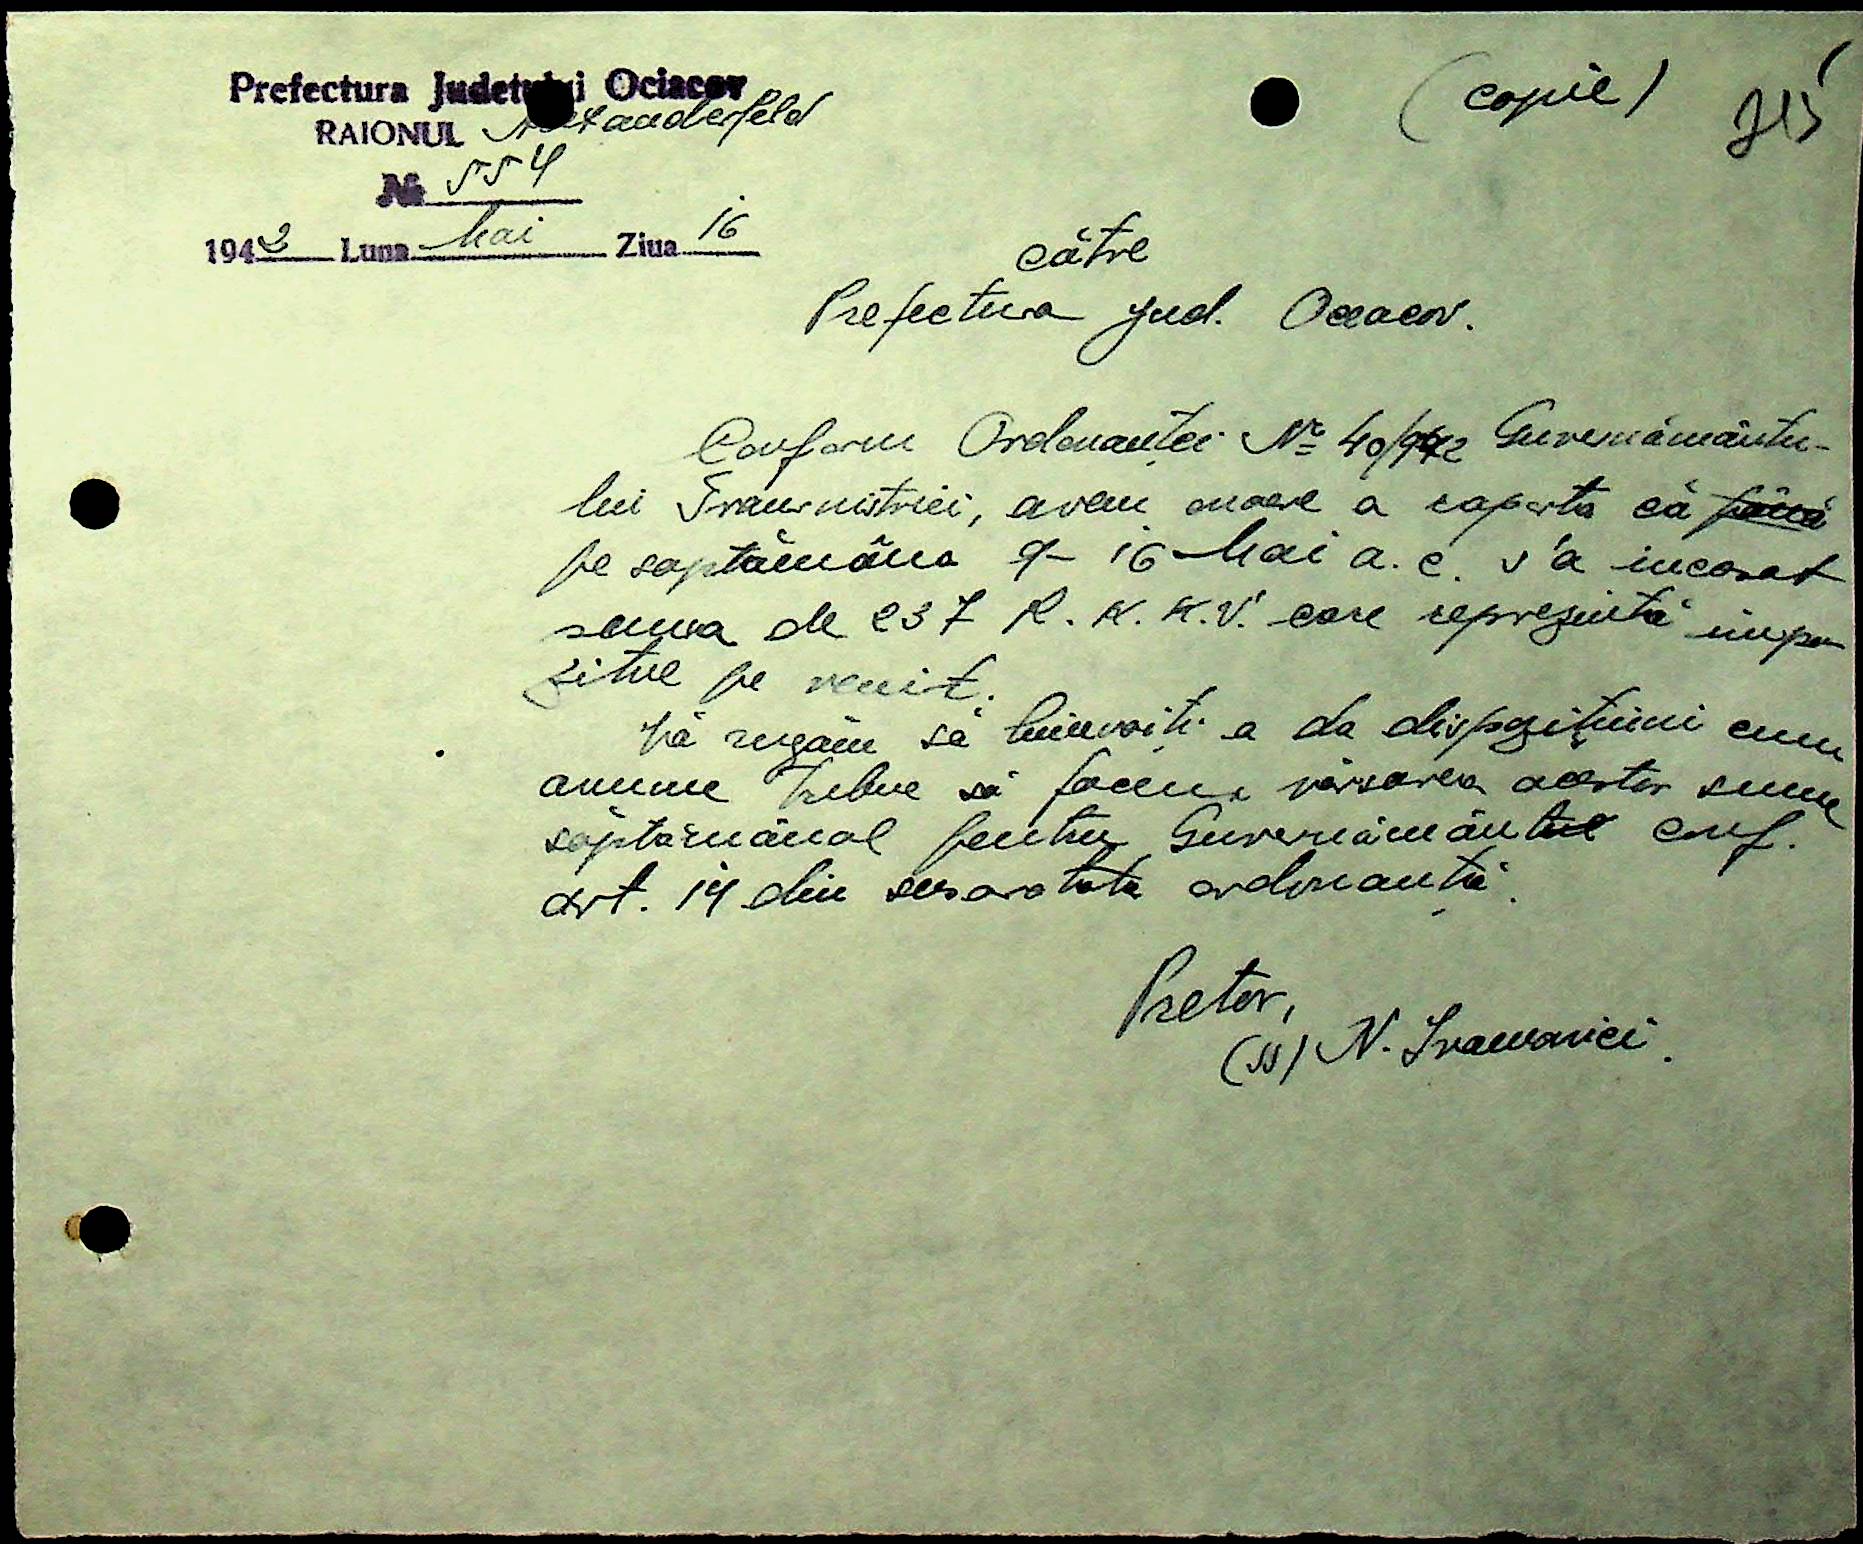 Prefectura Județului Ociacov
(copie)
RAIONUL Alexanderfeld
№ 554
1942 Luna Mai Ziua 16
către
Prefectura jud. Oceacov.
Conform Ordonanței Nr 40/942 Guvernământu-
lui Transnistriei, avem onoare a raporta că până
pe saptămâna 9-16 Mai a.c. s'a incasat
suma de 237 R.K.K.V. care reprezintă impo
zitul pe venit.
Vă rugăm să binevoiți a da dispozițiuni cum
anume trebue să facem vărsarea acestor sume
săptămânal pentru Guvernământul conf.
art. 14 din susaratata ordonanță.
Pretor,
(ss) N.